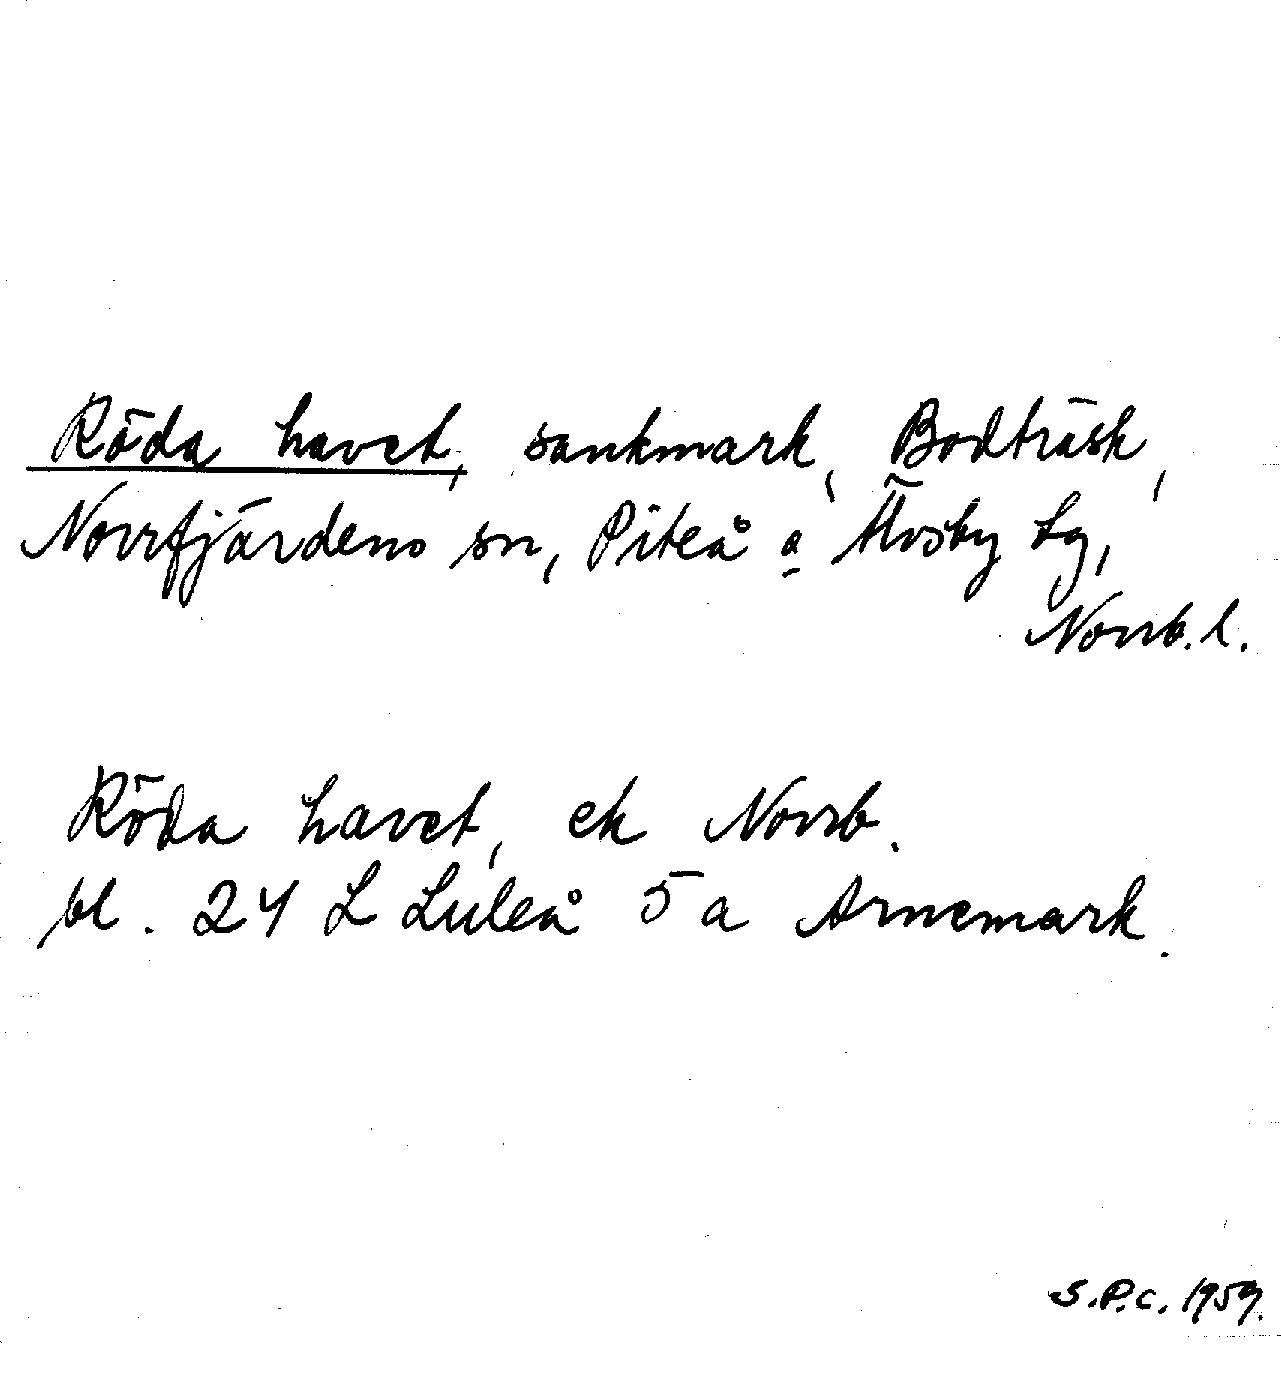 Röda havet, sankmark, Bodträsk,
Norrfjärdens sn, Piteå o Älvsby tg,
Norrb. l.
Röda havet, ek Norrb.
bl. 24 L Luleå 5 a Arnemark.
S.P.C. 1959.